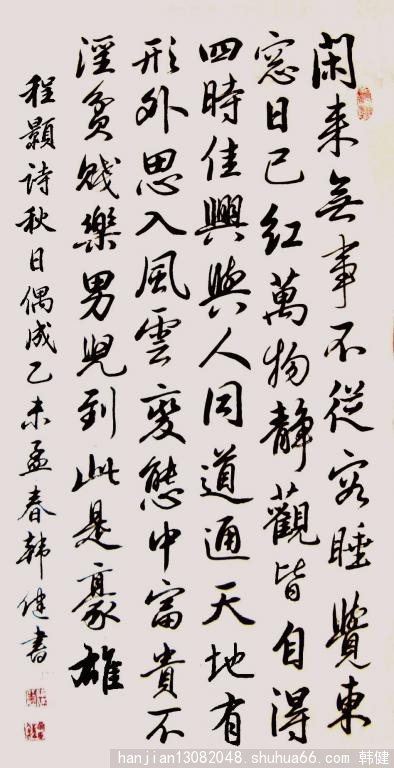 閑来無事不從容睡覺東
窓日已紅萬物靜觀皆自得
四時佳興與人同道通天地有
形外思入風雲變態中富貴不
淫貧賤樂男兒到此是豪雄
程顥詩秋日偶成乙未孟春韩健書
hanjian13082048.shuhua66.com 韩健